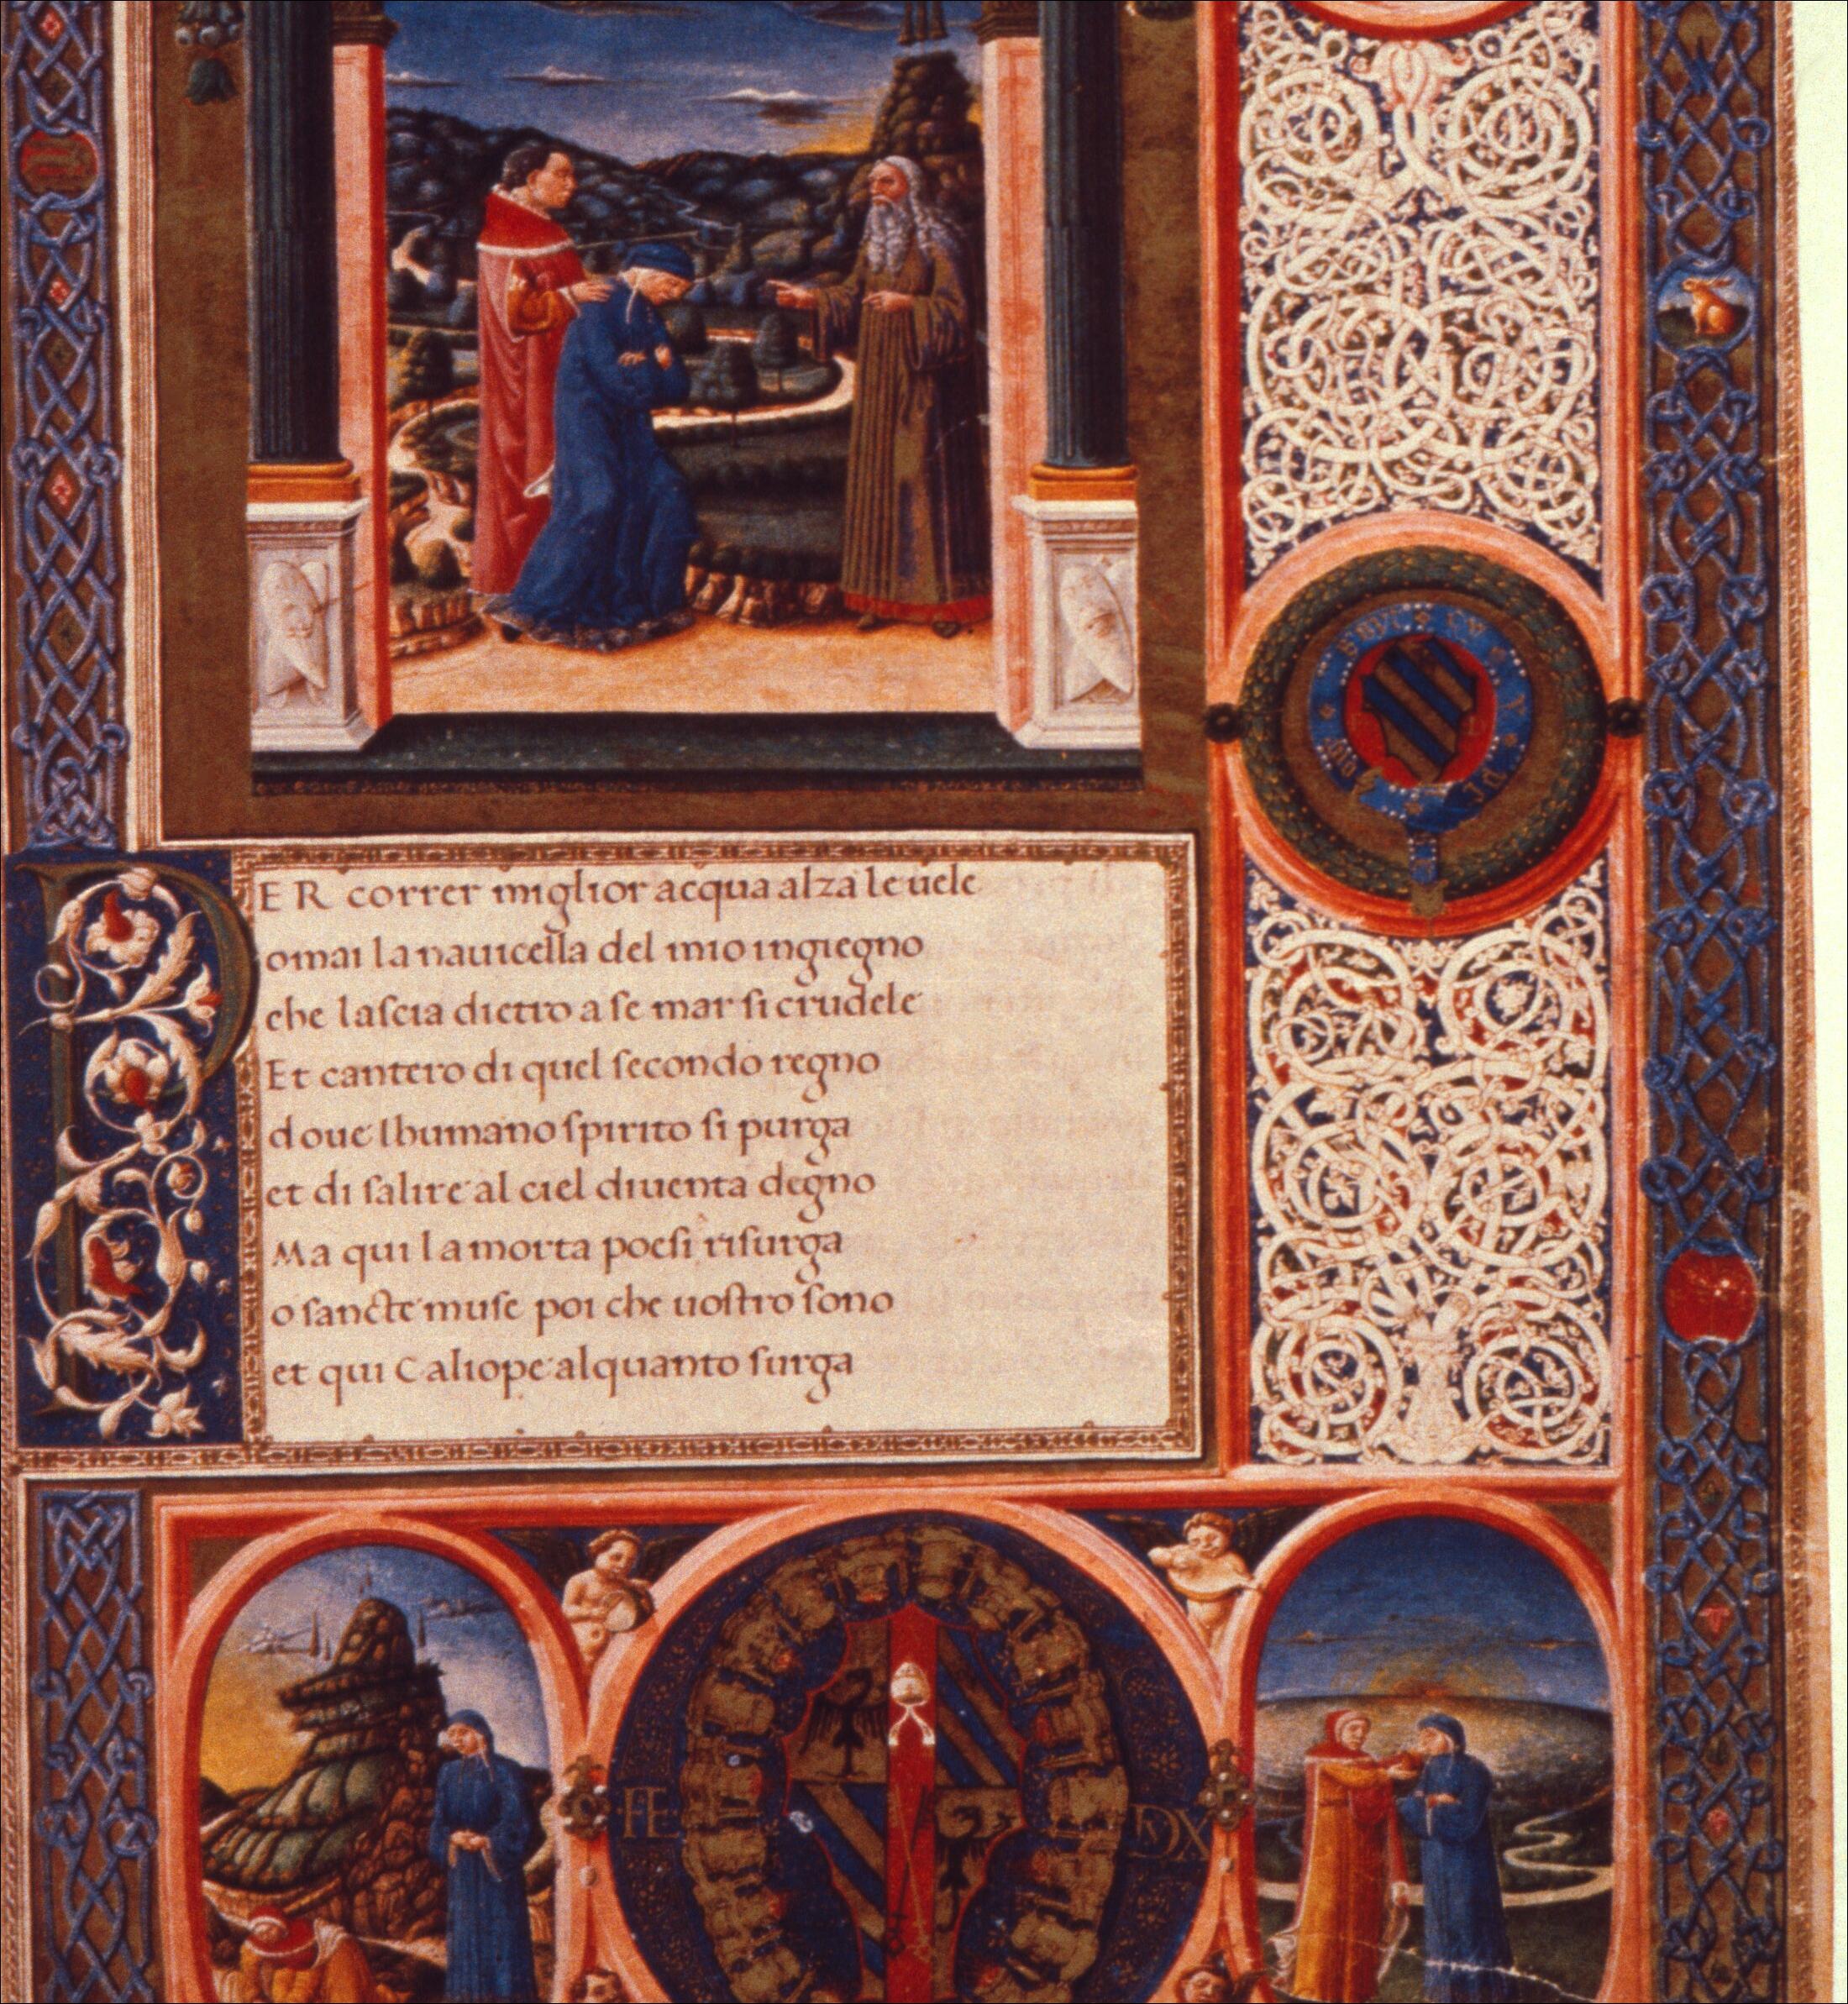 PER correr miglior acqua alza le uele
omai la nauicella del mio ingiegno
che lascia dietro a se mar si crudele
Et cantero di quel secondo regno
doue lhumano spirito si purga
et di salire al ciel diuenta degno
Ma qui la morta poesi risurga
o sancte muse poi che uostro sono
et qui Caliope alquanto surga
FE DVX